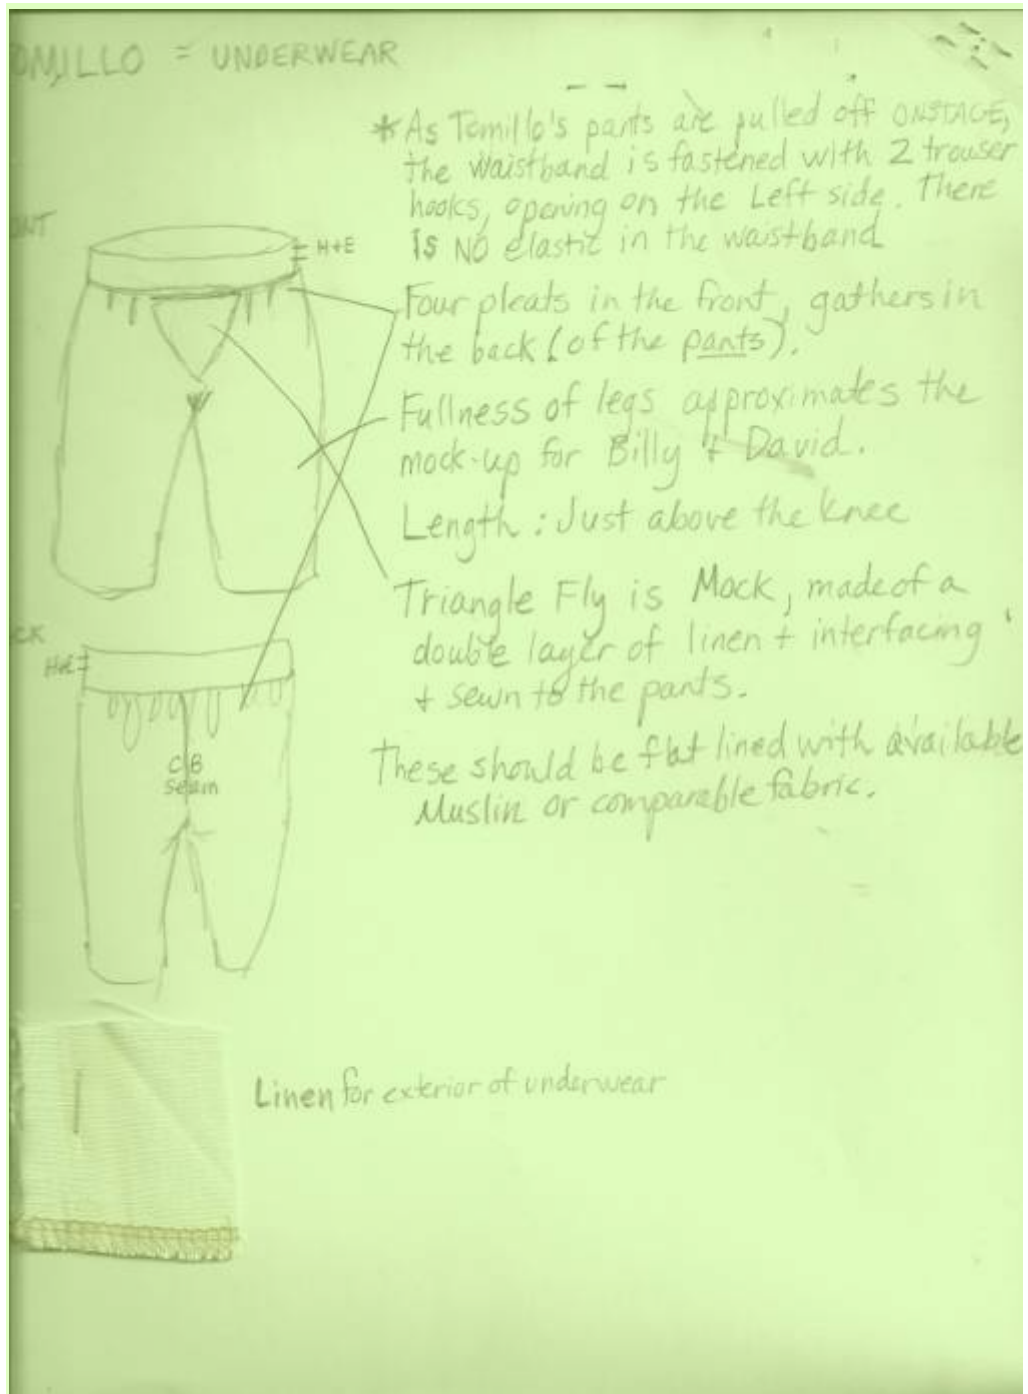 OMILLO = UNDERWEAR
* As Tomillo's pants are pulled off ONSTAGE,
the waistband is fastened with 2 trouser
hooks, opening on the Left side. There
is NO elastic in the waistband
ONT
H+E
Four pleats in the front, gathers in
the back (of the pants).
Fullness of legs approximates the
mock-up for Billy + David.
Length: Just above the knee
Triangle Fly is Mock, made of a
double layer of linen + interfacing
+ sewn to the pants.
CK
CB
Seam
These should be flat lined with available
Muslin or comparable fabric.
Linen for exterior of underwear